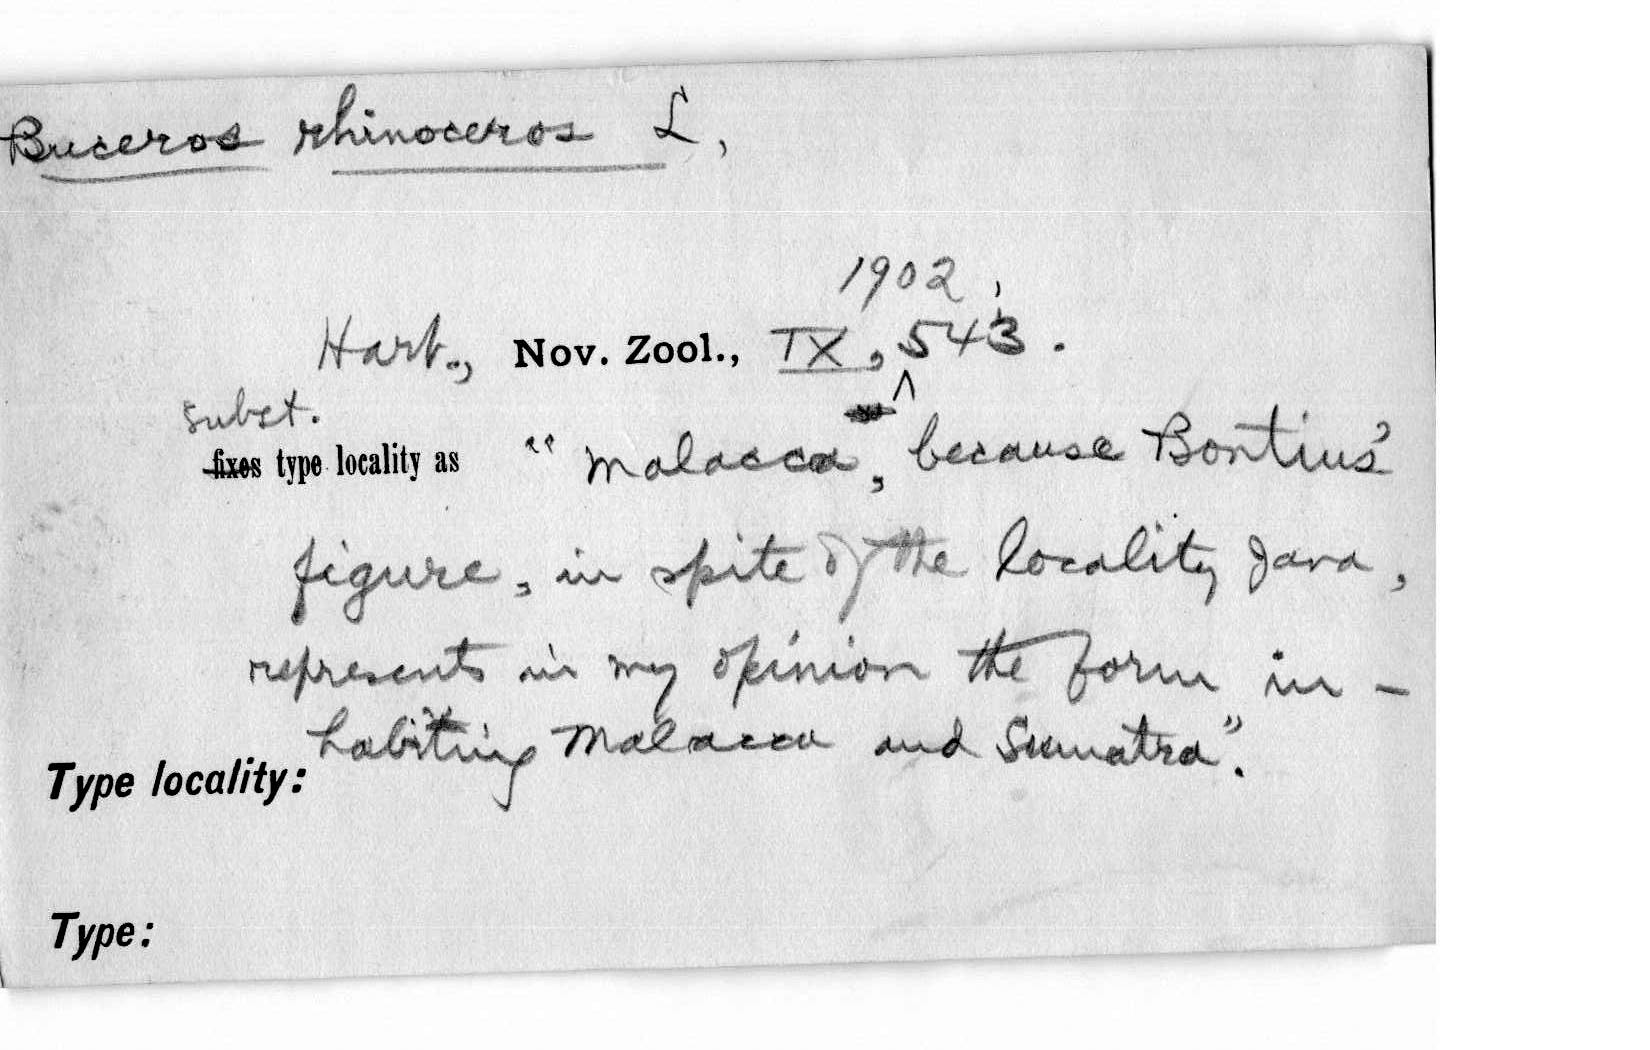 Buceros rhinoceros L.,
1902,
Hart., Nov. Zool., IX, 543.
subst.
fixes type locality as “Malacca, because Bontius'
figure, in spite of the locality Java,
represents in my opinion the form in-
habiting Malacca and Sumatra”.
Type locality:
Type: